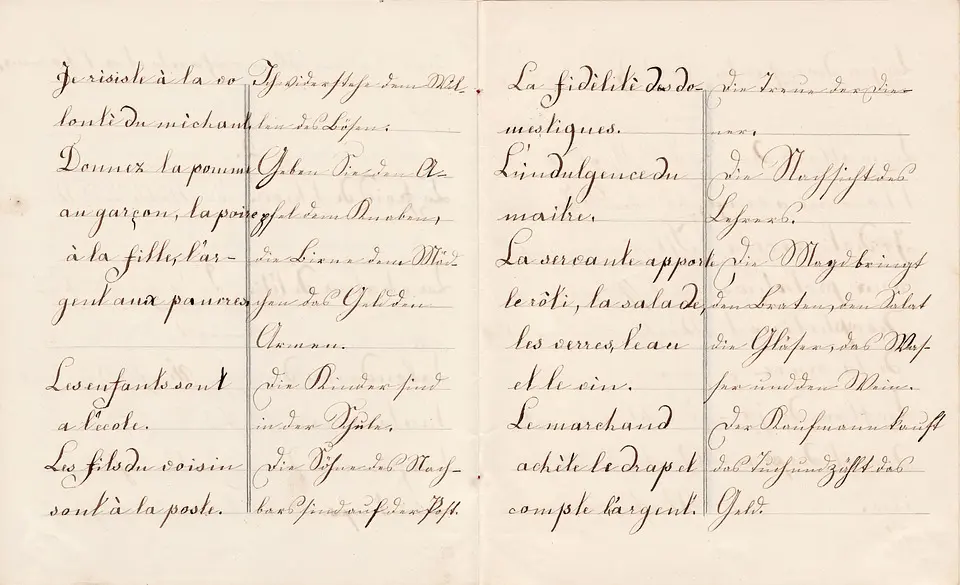 Je risiste à la vo
lontè du mèchant.
Donnez la pomme
au garçon, la poire
à la fille, l'ar-
gent aux pauvres
Les enfants sont
a l'ècole.
Les fils du voisin
sont à la poste.
Ich widerstehe dem Wil-
len des Bösen.
Geben Sie den A-
pfel dem Knaben,
die Birne dem Mäd-
chen das Geld den
Armen.
Die Kinder sind
in der Schule.
Die Söhne des Nach-
bars sind auf der Post.
La fidèlitè des do-
mestiques.
L'indulgence du
maitre.
La servante apporte
le rôti, la salade,
les verres, l'eau
et le vin.
Le marchand
achète le drap et
compte l'argent.
Die Treue der Die-
ner.
Die Nachsicht des
Lehrers.
Die Magd bringt
den Braten, den Salat
die Gläser, das Was-
ser und den Wein.
Der Kaufmann kauft
das Tuch und zählt das
Geld.